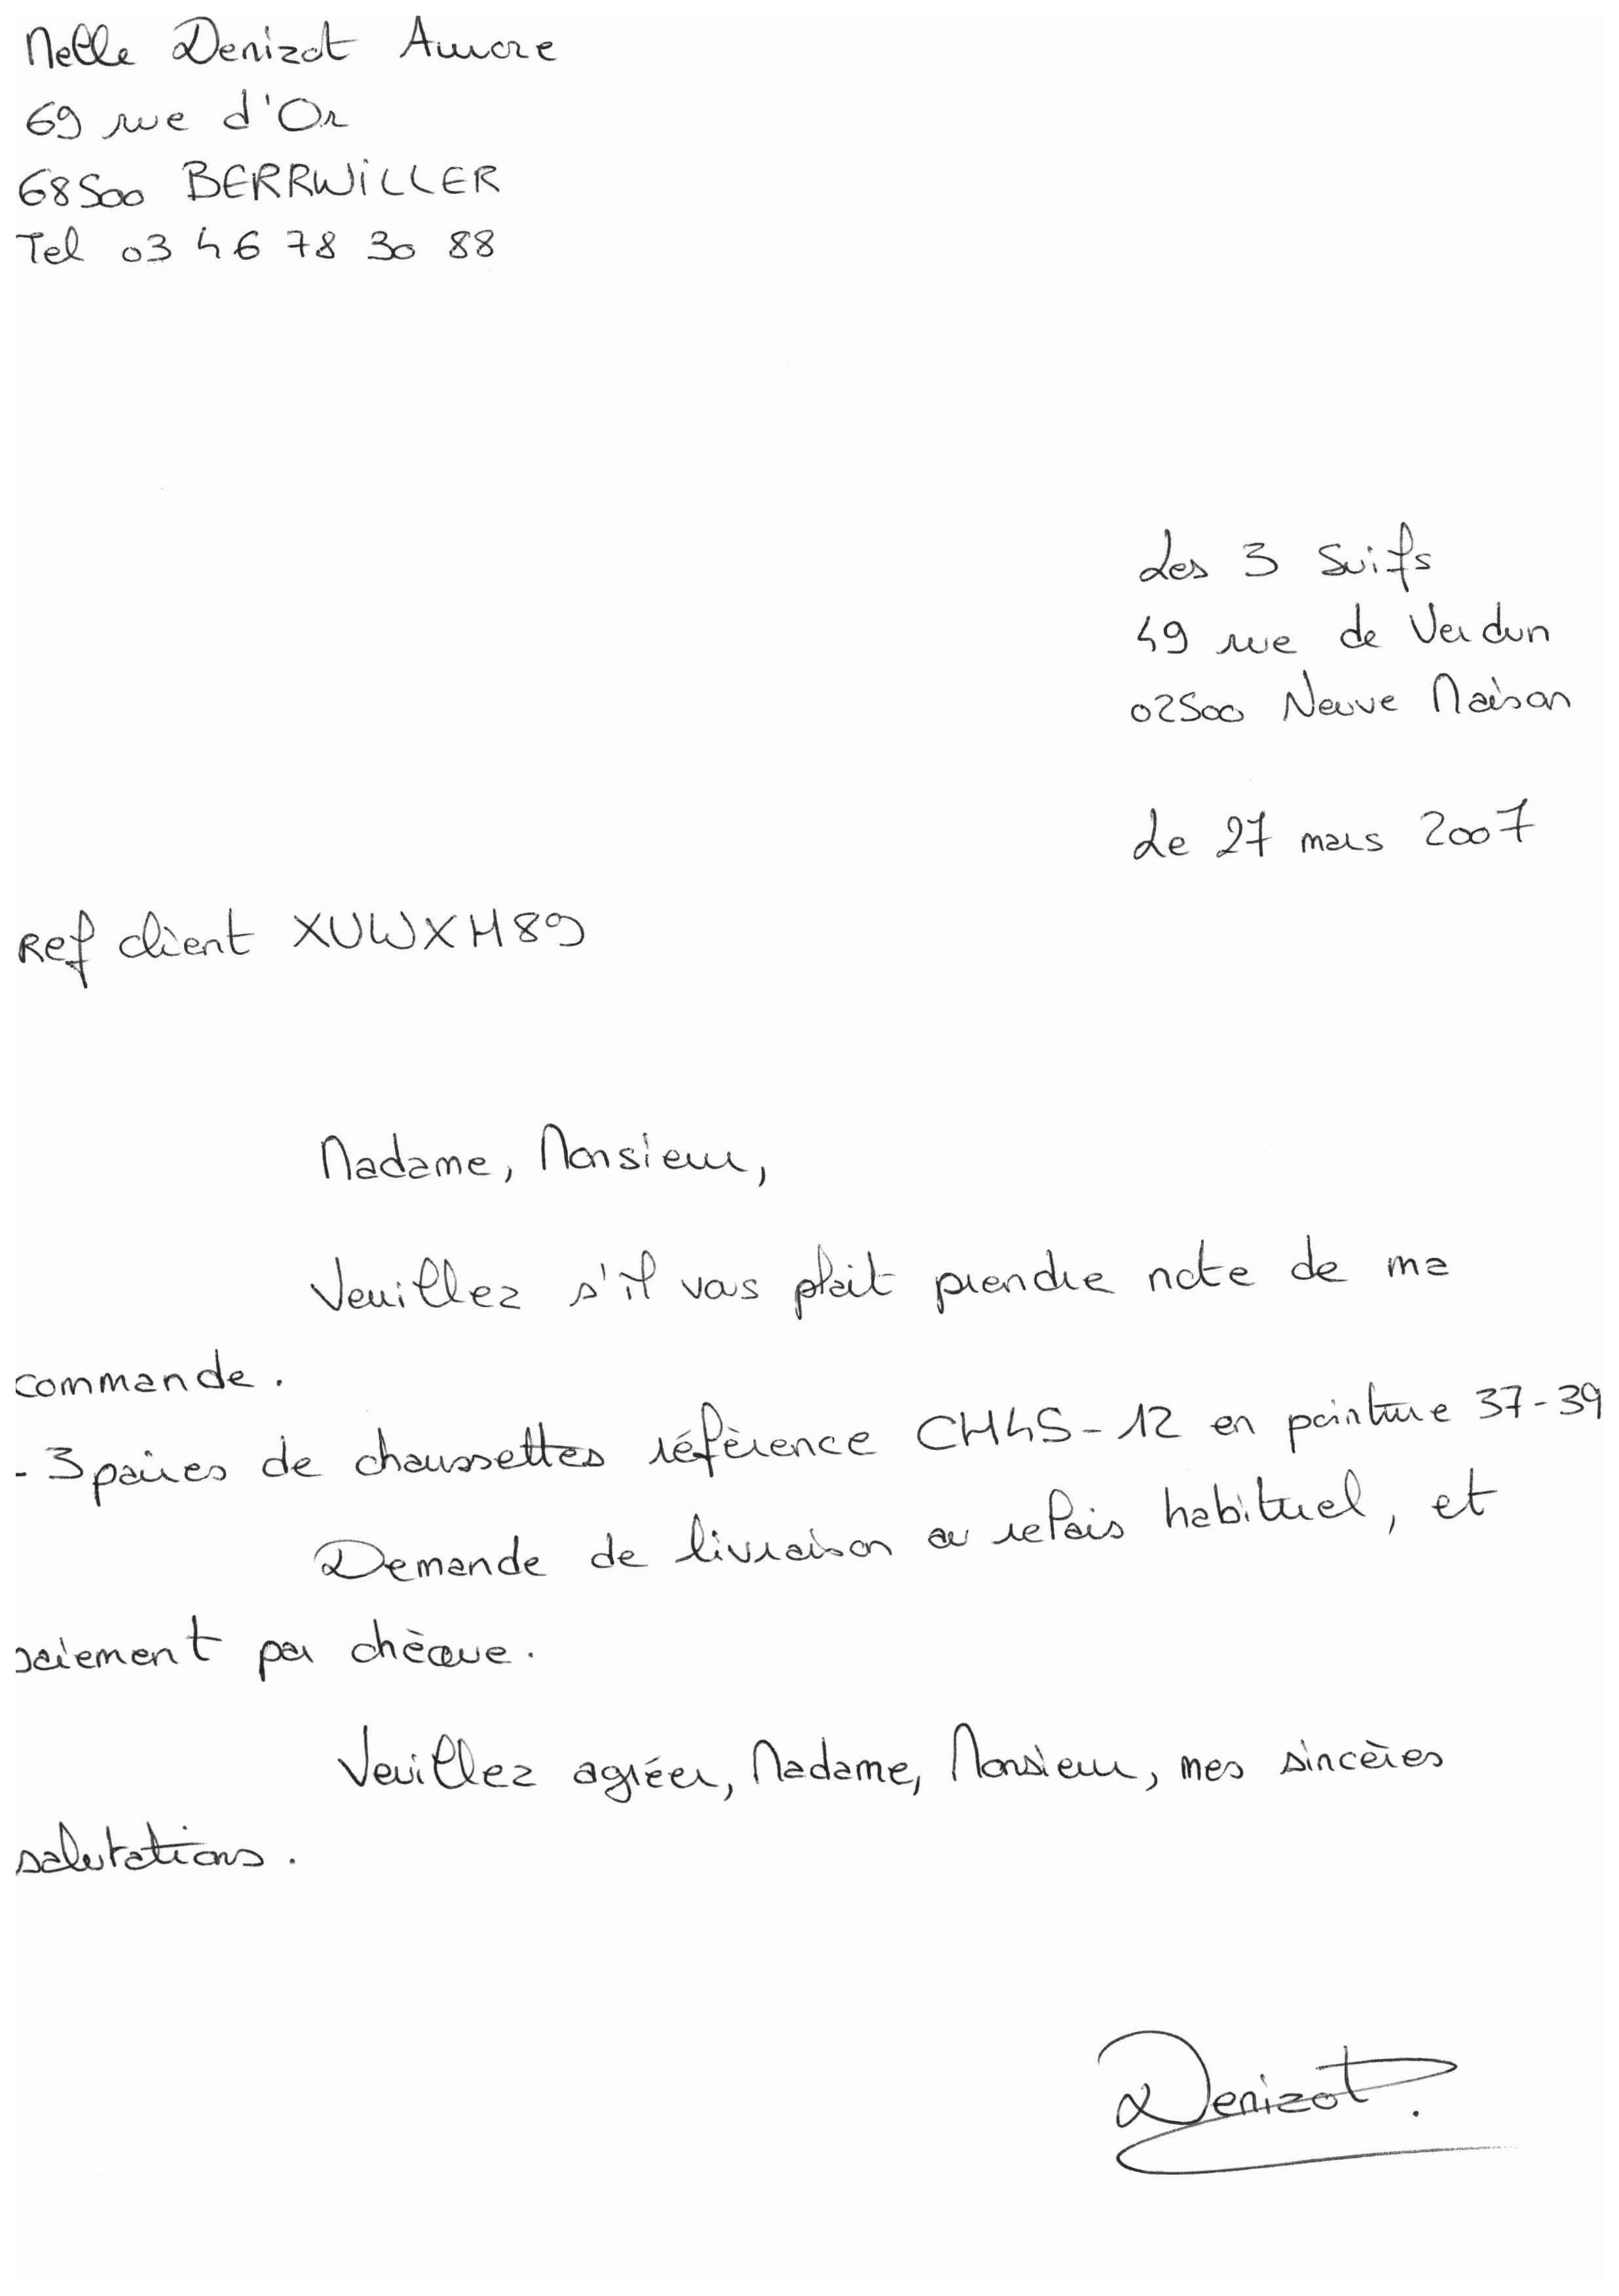 Melle Denizot Aurore
69 rue d'Or
68500 BERRWILLER
Tel 03 46 78 30 88
Les 3 Suifs
49 rue de Verdun
02500 Neuve Maison
Le 27 mars 2007
Ref client XUWXH89
Madame, Monsieur,
Veuillez s'il vous plait prendre note de ma
commande.
- 3 paires de chaussettes référence CH4S-12 en pointure 37-39
Demande de livraison au relais habituel, et
paiement par chèque.
Veuillez agréer, Madame, Monsieur, mes sincères
salutations.
Denizot.